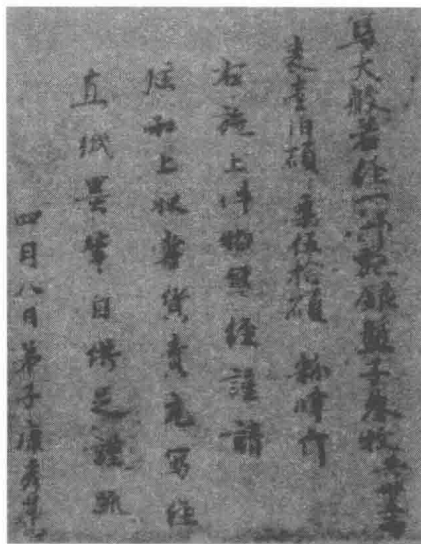 寫大般若经一部施銀盤子叁枚共卅五兩
麦壹伯碩 粟伍拾碩 粉肆斤
右施上件物寫经謹請
炫和上收掌貨賣充寫经
直紙墨筆自供足謹疏
四月八日弟子康秀華